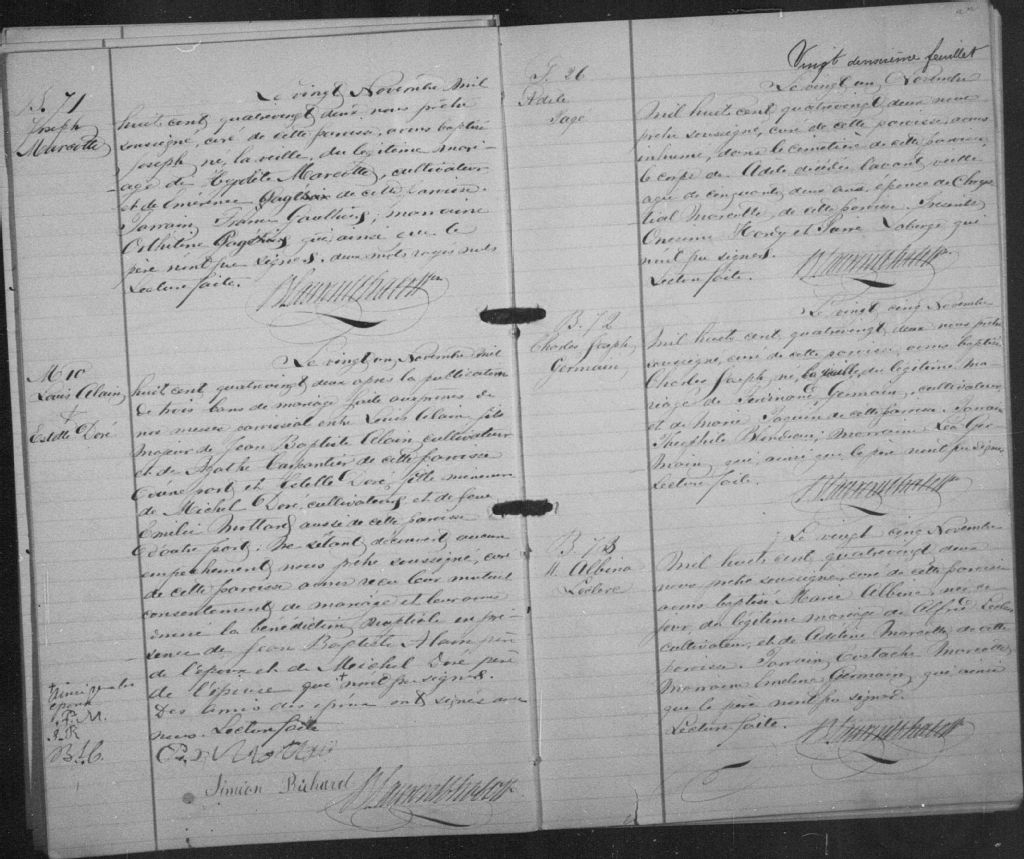 B. 71
Joseph
Marcotte
Le vingt Novembre mil
huit cent quatrevingt deux nous prêtre
soussigné, curé de cette paroisse, avons baptisé
Joseph, né, la veille, du légitime mari-
age de Marcotte, cultivateur
et de Emérence de cette paroisse.
Parrain, France Gaulthier; marraine
qui, ainsi que le
père n'ont pu signer. deux mots rayés nuls
Lecture faite.
M 10
Louis Alain
+
Estelle Doré
Le vingt un Novembre mil
huit cent quatrevingt deux après la publication
de trois bans de mariage faite aux prônes de
nos messes paroissiales entre Louis Alain, fils
majeur de Jean Baptiste Alain, cultivateur
et de Agathe Carpentier de cette paroisse
d'une part et Estelle Doré, fille mineure
de Michel Doré, cultivateur, et de feue
Emilie aussi de cette paroisse
d'autre part; Ne s'étant découvert aucun
empêchement nous prêtre soussigné, curé
de cette paroisse avons reçu leur mutuel
consentement de mariage et leur avons
donné la bénédiction nuptiale en pré-
sence de Jean Baptiste Alain père
de l'époux et de Michel Doré père
de l'épouse qui + n'ont pu signer.
Des amis des époux ont signés avec
nous. Lecture faite
+
époux
B. L. C.
Siméon Richard
Vingt deuxième feuillet
S. 26
Adele
Pagé
Le vingt un Novembre
mil huit cent quatrevingt deux nous
prêtre soussigné, curé de cette paroisse, avons
inhumé, dans le cimetière de cette paroisse,
le corps de Adele décédée l'avant veille
agée de cinquante deux ans, épouse de
Marcotte, de cette paroisse. Présents
Onesime Hardy et Pierre Laberge qui
n'ont pu signer.
Lecture faite.
B. 72
Charles Joseph
Germain
Le vingt cinq Novembre
mil huit cent quatrevingt deux nous prêtre
soussigné, curé de cette paroisse, avons baptisé
Charles Joseph, né, la veille, du légitime ma-
riage de Ferdinand Germain, cultivateur
et de Marie Paquin de cette paroisse. Parrain
Théophile; Marraine Léa Ger-
main, qui, ainsi que le père n'ont pu signer
Lecture faite.
B 73
M. Albina
Leclerc
Le vingt cinq Novembre
mil huit cent quatrevingt deux
nous prêtre soussigné, curé de cette paroisse
avons baptisé Marie Albina, née ce
jour, du légitime mariage de Alfred Leclerc
cultivateur, et de Adeline Marcotte de cette
paroisse. Parrain, Eustache Marcotte,
Marraine Emeline Germain, qui ainsi
que le père n'ont pu signer.
Lecture faite.